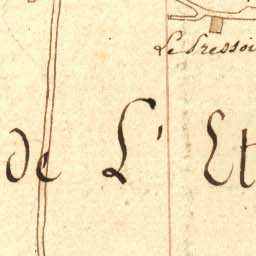 Le Pressoi
de L' Et